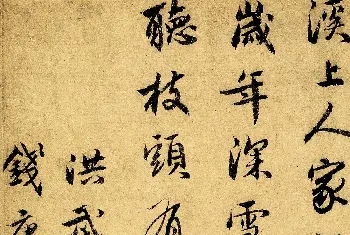 溪上人家
歲年深雪
聽枝頭有
洪武
錢